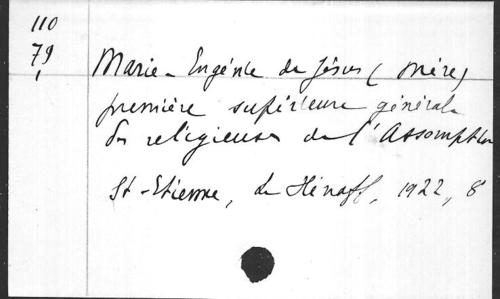 110
79
Marie-Engénie de Jésus (mère)
première supérieure générale
des religieuses de l'Assomption
St-Etienne, Le Hénaff, 1922, 8°